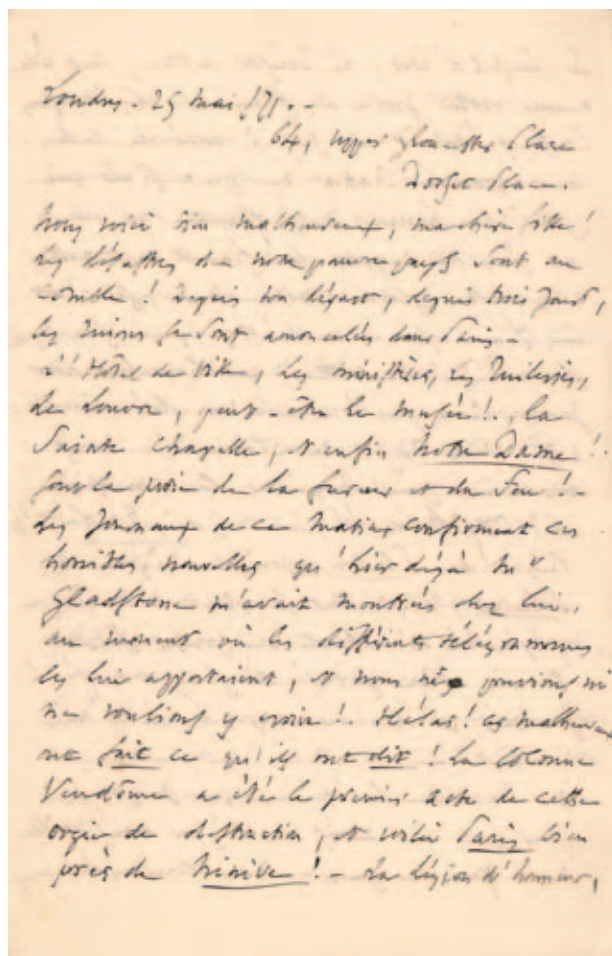 Londres. 25 mai /71. -
64, upper Gloucester Place
Dorset Place.
Nous voici bien malheureux, ma chère fille !
Les désastres de notre pauvre pays sont au
comble ! Depuis ton départ, depuis trois jours,
les ruines se sont amoncelées dans Paris -
L'Hôtel de Ville, les ministères, les Tuileries,
Le Louvre, peut-être le musée !., la
Sainte Chapelle, et enfin Notre Dame !.
sont la proie de la fureur et du Feu ! -
Les Journaux de ce matin confirment ces
horribles nouvelles qu'hier déjà Mr
Gladstone m'avait montrées chez lui,
au moment où les différents télégrammes
les lui apportaient, et nous ne pouvions ni
ne voulions y croire !. Hélas ! ces malheureux
ont fait ce qu'ils ont dit ! La Colonne
Vendôme a été le premier acte de cette
orgie de destruction, et voilà Paris bien
près de Ninive ! - La Légion d'honneur,